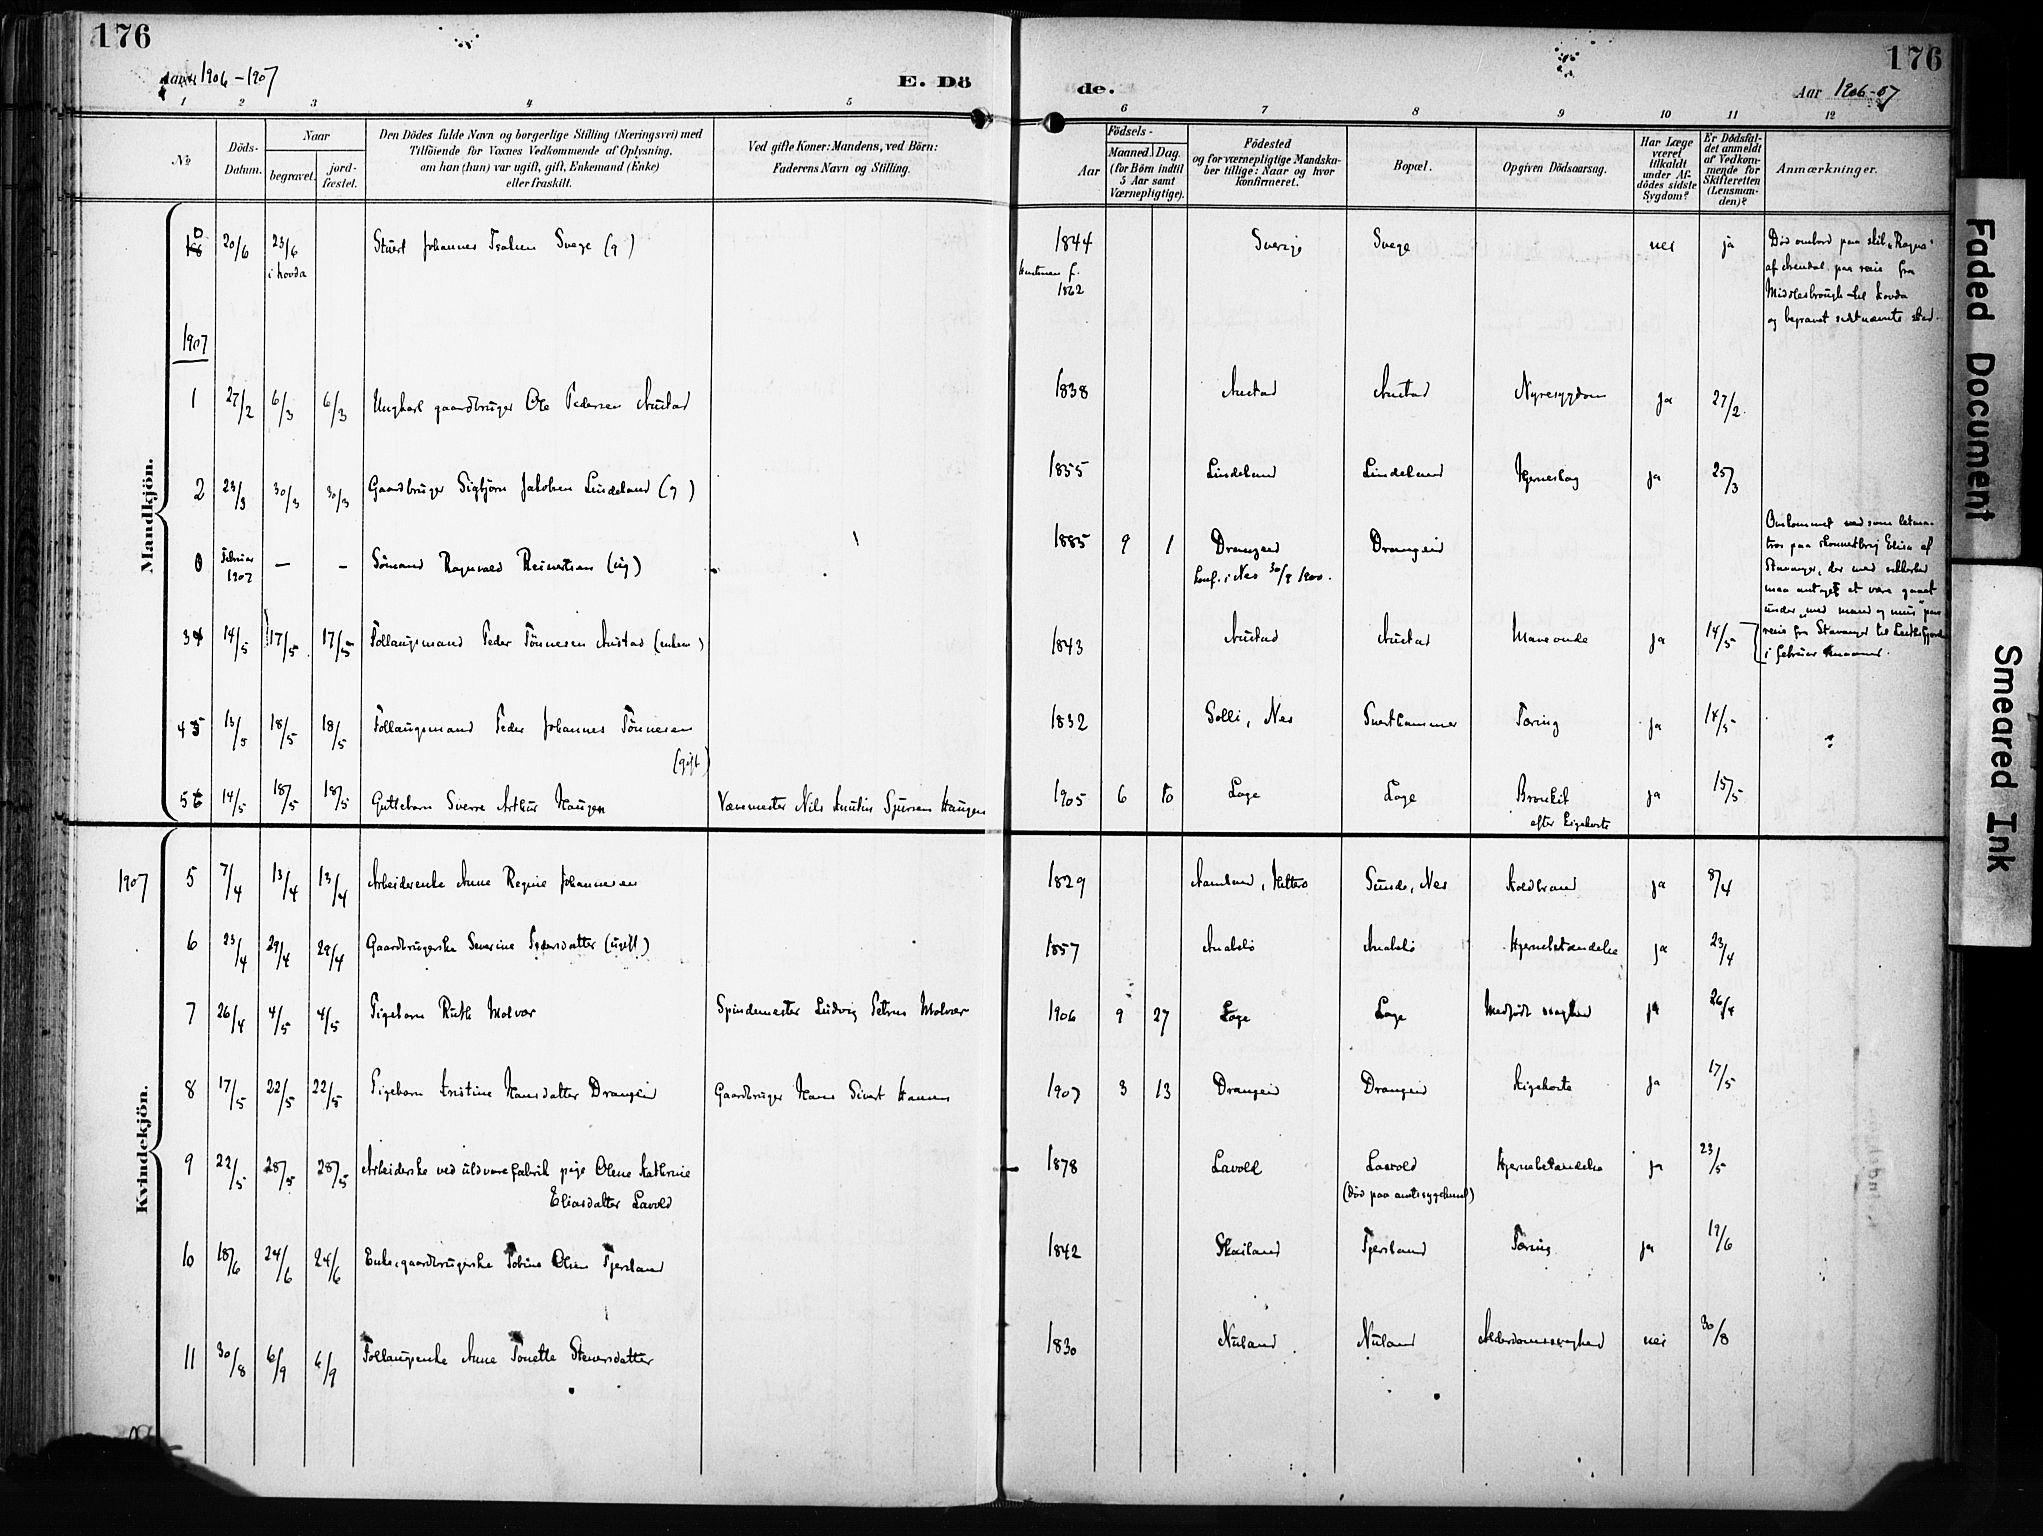 176
176
Aaret 1906-1907
E. Dö
de.
Aar 1906-07
1 2 3 4 5 6 7 8 9 10 11 12
No
Döds-
Datum.
Naar
begravet.
jord-
fæstet.
Den Dödes fulde Navn og borgerlige Stilling (Næringsvei) med
Tilföiende for Voxnes Vedkommende af Oplysning,
om han (hun) var ugift, gift, Enkemand (Enke)
eller fraskilt.
Ved gifte Koner: Mandens, ved Börn:
Faderens Navn og Stilling.
Födsels-
Aar
Maaned.
Dag.
(for Börn indtil
5 Aar samt
Værnepligtige).
Födested
og for værnepligtige Mandska-
ber tillige: Naar og hvor
konfirmeret.
Bopæl.
Opgiven Dödsaarsag.
Har Læge
været
tilkaldt
under Af-
dödes sidste
Sygdom?
Er Dödsfal-
det anmeldt
af Vedkom-
mende for
Skifteretten
(Lensman-
den)?
Anmærkninger.
Mandkjön.
0 20/6 23/6 Stuert Johannes Svege (g) 1844 Sverige Svege nei ja Död ombord paa skib "Ragna"
i Kovda
f. 1862
af Arendal paa reise fra
Middlesbrough til Kovda
og begravet sidstnævnte sted.
1907
1 27/2 6/3 6/3 Ungkarl gaardbruger Ole Pedersen Austad 1838 Austad Austad Nyresygdom ja 27/2
2 23/3 30/3 30/3 Gaardbruger Sigbjörn Jakobsen Lindeland (g) 1855 Lindeland Lindeland Hjerneslag ja 25/3
0 Februar 1907 — — Sömand Ragnvald Reinertsen (ug) 1885 9 1 Drangeid Drangeid
Konf. i Nes 30/9 1900.
Omkommet som letma-
tros paa skonnertbrig Elisa af
Stavanger, der med sikkerhed
maa antages at være gaaet
under "med mand og mus" paa
reise fra Stavanger til
i februar maaned.
3 14/5 17/5 17/5 Follaugsmand Peder Tönnesen Austad (enkem) 1843 Austad Austad Maveonde ja 14/5
4 13/5 18/5 18/5 Follaugsmand Peder Johannes Tönnesen 1832 Solli, Nes Svarthammer Tæring ja 14/5
(gift)
5 14/5 18/5 18/5 Guttebarn Sverre Arthur Haugen Vævmester Nils Sjursen Haugen 1905 6 10 Loge Loge Bronkit ja 15/5
efter kigehoste
Kvindekjön.
1907
5 7/4 13/4 13/4 Arbeiderenke Anne Regine Johannesen 1829 Aamland, Hitterö Sunde, Nes Koldbrand ja 8/4
6 23/4 29/4 29/4 Gaardbrugerske Severine Pedersdatter (ugift) 1857 Anabelö Anabelö Hjernebetændelse ja 23/4
7 26/4 4/5 4/5 Pigebarn Ruth Molvær Spindemester Ludvig Petrus Molvær 1906 9 27 Loge Loge Medfödt svaghed ja 26/4
8 17/5 22/5 22/5 Pigebarn Kristine Hansdatter Drangeid Gaardbruger Hans Sivert Hansen 1907 3 13 Drangeid Drangeid Kigehoste ja 17/5
9 22/5 28/5 28/5 Arbeiderske ved uldvarefabrik pige Olene Kathrine 1878 Lavold Lavold Hjernebetændelse ja 23/5
Eliasdatter Lavold
(död paa amtssygehuset)
10 18/6 24/6 24/6 Enke, gaardbrugerske Tobine Olsen Fjersland 1842 Skailand Fjersland Tæring ja 19/6
11 30/8 6/9 6/9 Follaugsenke Anne Tonette Steversdatter 1830 Nuland Nuland Alderdomssvaghed nei 30/8
Faded Document
Smeared Ink